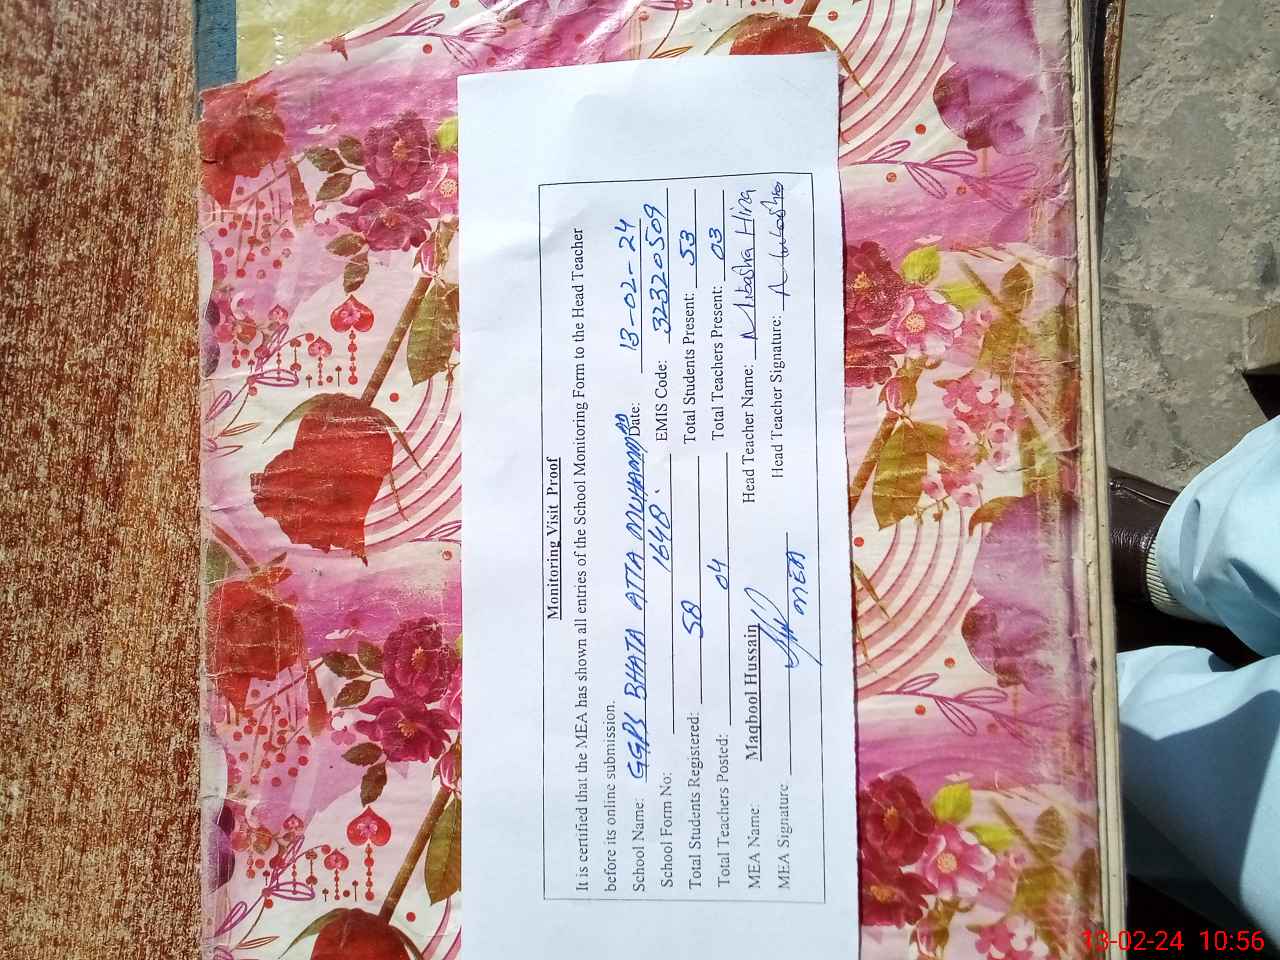 Monitoring Visit Proof
It is certified that the MEA has shown all entries of the School Monitoring Form to the Head Teacher
before its online submission.
School Name: GGPS BHATA ATTA MUHAMMAD Date: 13-02-24
School Form No: 1648 EMIS Code: 32320509
Total Students Registered: 58 Total Students Present: 53
Total Teachers Posted: 04 Total Teachers Present: 03
MEA Name: Maqbool Hussain Head Teacher Name: Mubasha Hira
MEA Signature MEA Head Teacher Signature:
13-02-24 10:56